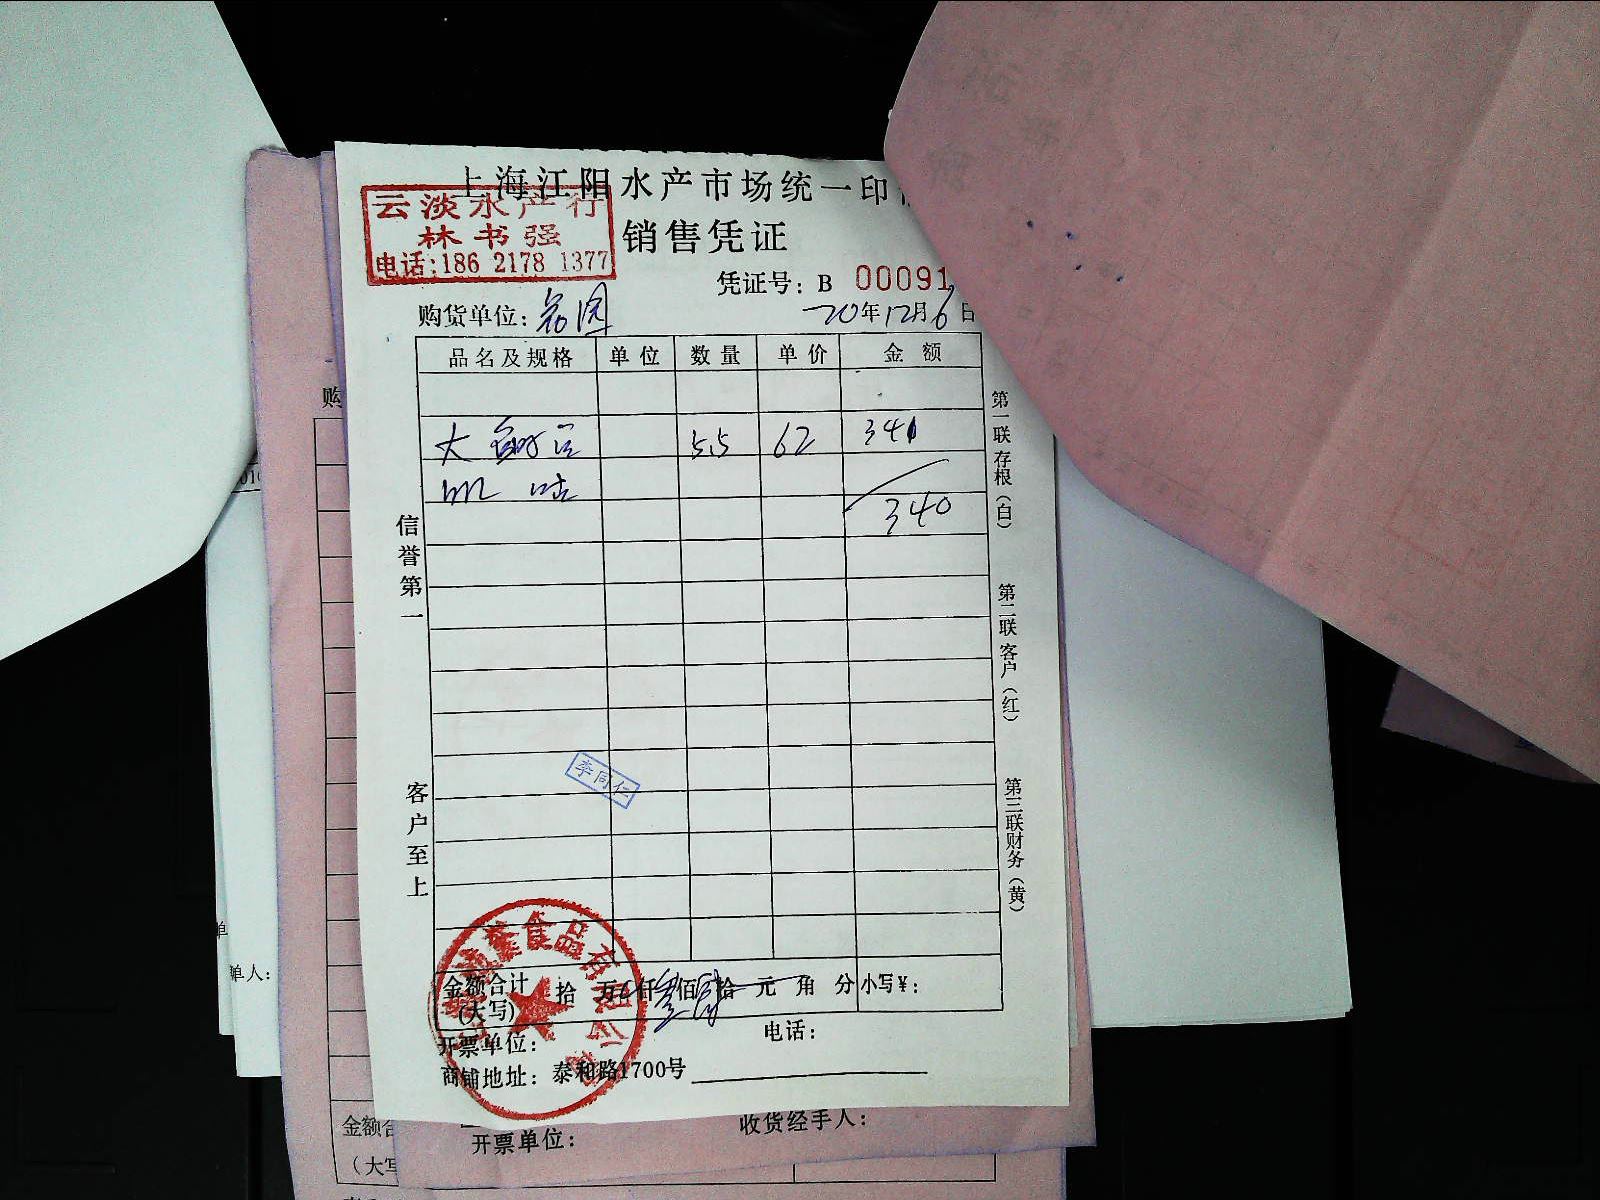 上海江阳水产市场统一印
云淡水产行
林书强
电话:186 2178 1377
销售凭证
凭证号: B 00091
购货单位:
20年12月6日
品名及规格 单位 数量 单价 金额
大 55 62 341
340
信誉第一
客户至上
第一联存根(白)
第二联客户(红)
第三联财务(黄)
李同仁
食品有限公司
金额合计(大写) 拾 万 仟 佰 拾 元 角 分 小写¥:
开票单位: 电话:
商铺地址: 泰和路1700号
购
单人:
收货经手人:
开票单位:
金额合
(大写